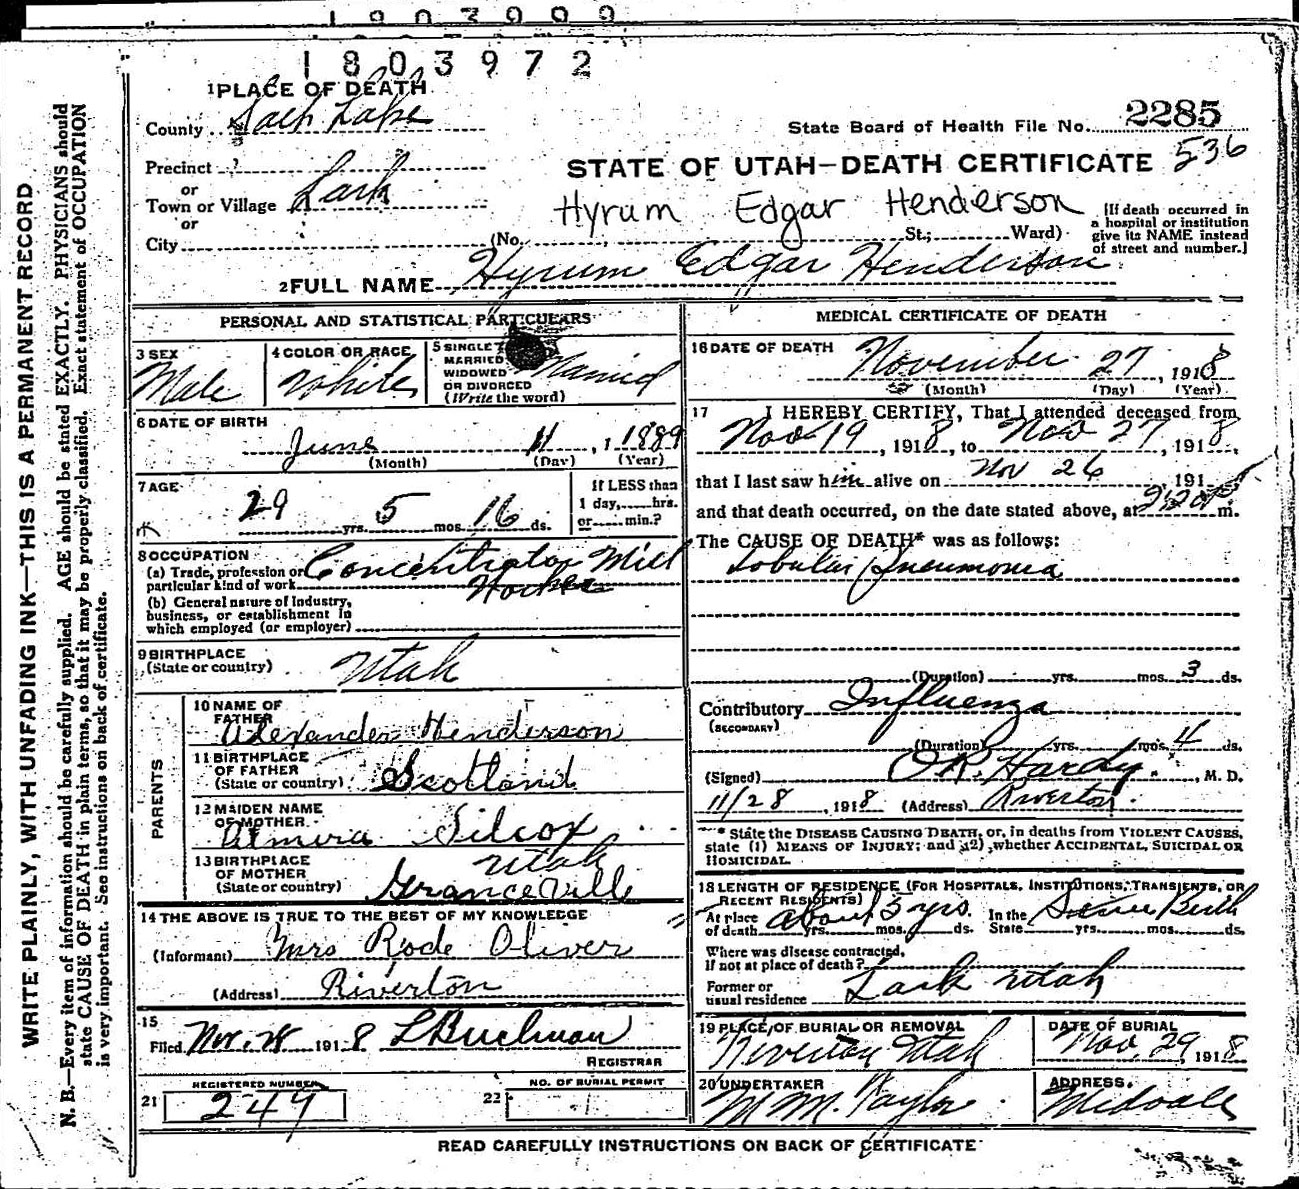 1803972
1 PLACE OF DEATH
County Salt Lake
State Board of Health File No. 2285
536
Precinct
STATE OF UTAH—DEATH CERTIFICATE
or
Town or Village Lark
Hyrum Edgar Henderson
or
City (No. St.; Ward)
[If death occurred in
a hospital or institution
give its NAME instead
of street and number.]
2 FULL NAME Hyrum Edgar Henderson
PERSONAL AND STATISTICAL PARTICULARS
3 SEX
Male
4 COLOR OR RACE
White
5 SINGLE
MARRIED
WIDOWED
OR DIVORCED
(Write the word)
Married
6 DATE OF BIRTH
June 11, 1 1889
(Month) (Day) (Year)
7 AGE
29 yrs. 5 mos. 16 ds.
If LESS than
1 day, hrs.
or min.?
8 OCCUPATION
(a) Trade, profession or
particular kind of work
Concentrator Mill
(b) General nature of Industry,
business, or establishment in
which employed (or employer)
9 BIRTHPLACE
(State or country) Utah
PARENTS
10 NAME OF
FATHER
Alexander Henderson
11 BIRTHPLACE
OF FATHER
(State or country) Scotland
12 MAIDEN NAME
OF MOTHER
Almira Silcox
13 BIRTHPLACE
OF MOTHER
(State or country)
Utah
14 THE ABOVE IS TRUE TO THE BEST OF MY KNOWLEDGE
(Informant) Mrs Rode Oliver
(Address) Riverton
15
Filed Nov. 28 1918 L Buchman
REGISTRAR
REGISTERED NUMBER
21 249
NO. OF BURIAL PERMIT
22
MEDICAL CERTIFICATE OF DEATH
16 DATE OF DEATH
November 27, 1918
(Month) (Day) (Year)
17 I HEREBY CERTIFY, That I attended deceased from
Nov 19, 1918, to Nov 27, 1918,
that I last saw him alive on Nov 26, 191
and that death occurred, on the date stated above, at m.
The CAUSE OF DEATH* was as follows:
Lobular Pneumonia
(Duration) yrs. mos. 3 ds.
Contributory Influenza
(SECONDARY)
(Duration) yrs. mos. 4 ds.
(Signed) O.R. Hardy, M. D.
11/28, 1918 (Address) Riverton.
* State the DISEASE CAUSING DEATH, or, in deaths from VIOLENT CAUSES,
state (1) MEANS OF INJURY; and (2) whether ACCIDENTAL, SUICIDAL OR
HOMICIDAL.
18 LENGTH OF RESIDENCE (FOR HOSPITALS, INSTITUTIONS, TRANSIENTS, OR
RECENT RESIDENTS)
At place
of death about 5 yrs. yrs. mos. ds.
In the
State Since Birth yrs. mos. ds.
Where was disease contracted,
If not at place of death?
Former or
usual residence Lark Utah
19 PLACE OF BURIAL OR REMOVAL
Riverton, Utah
DATE OF BURIAL
Nov. 29 1918
20 UNDERTAKER
M M. Taylor
ADDRESS.
Midvale
READ CAREFULLY INSTRUCTIONS ON BACK OF CERTIFICATE
WRITE PLAINLY, WITH UNFADING INK—THIS IS A PERMANENT RECORD
N. B.—Every item of information should be carefully supplied. AGE should be stated EXACTLY. PHYSICIANS should
state CAUSE OF DEATH in plain terms, so that it may be properly classified. Exact statement of OCCUPATION
is very important. See instructions on back of certificate.